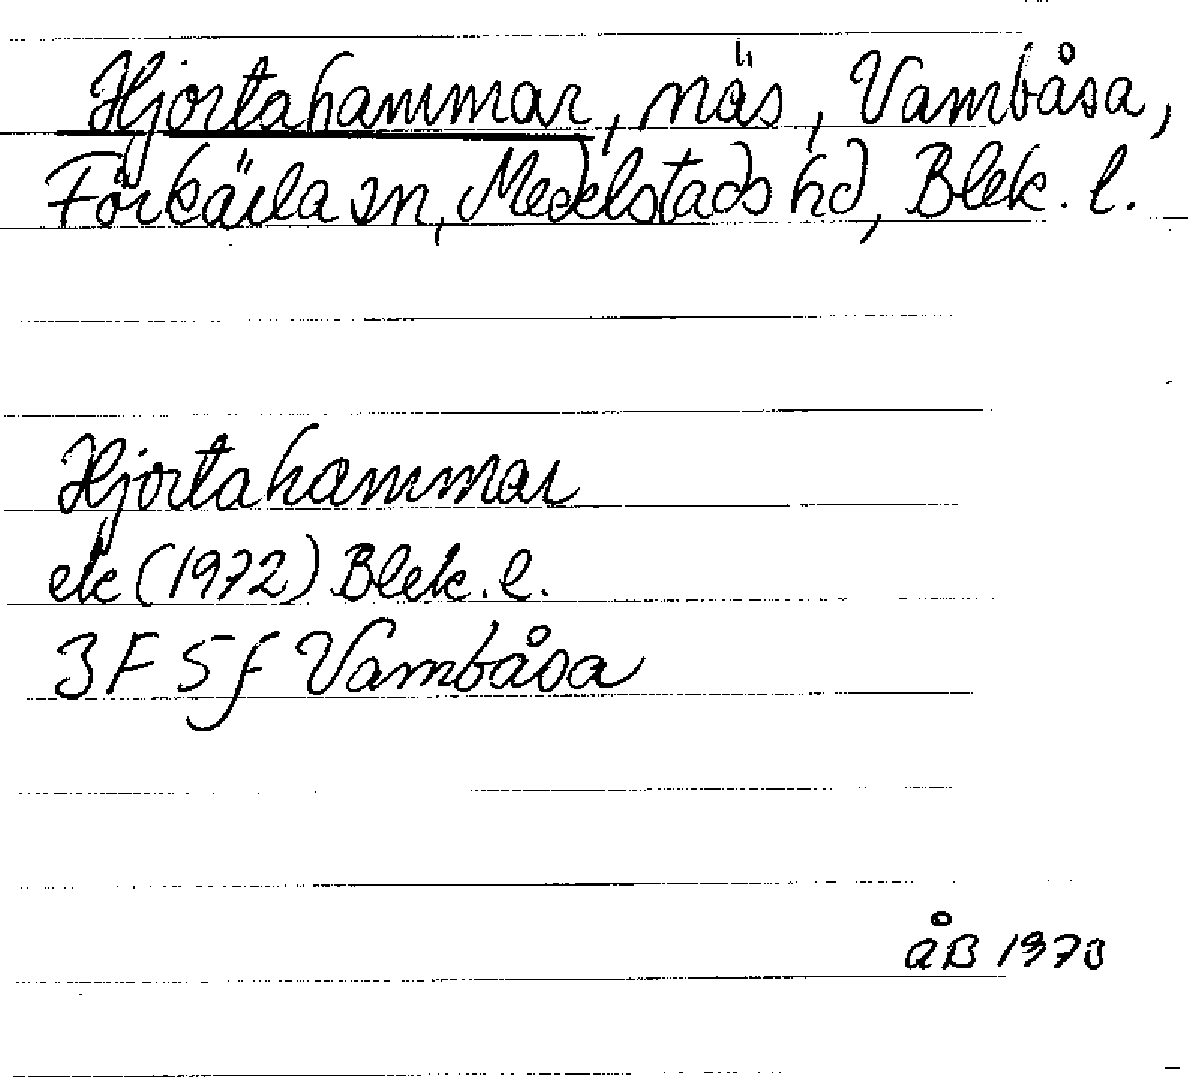 Hjortahammar, näs, Vambåsa,
Förkärla sn, Medelstads hd, Blek. l.
Hjortahammar
ek (1972) Blek. l.
3F 5f Vambåsa
åB 1970